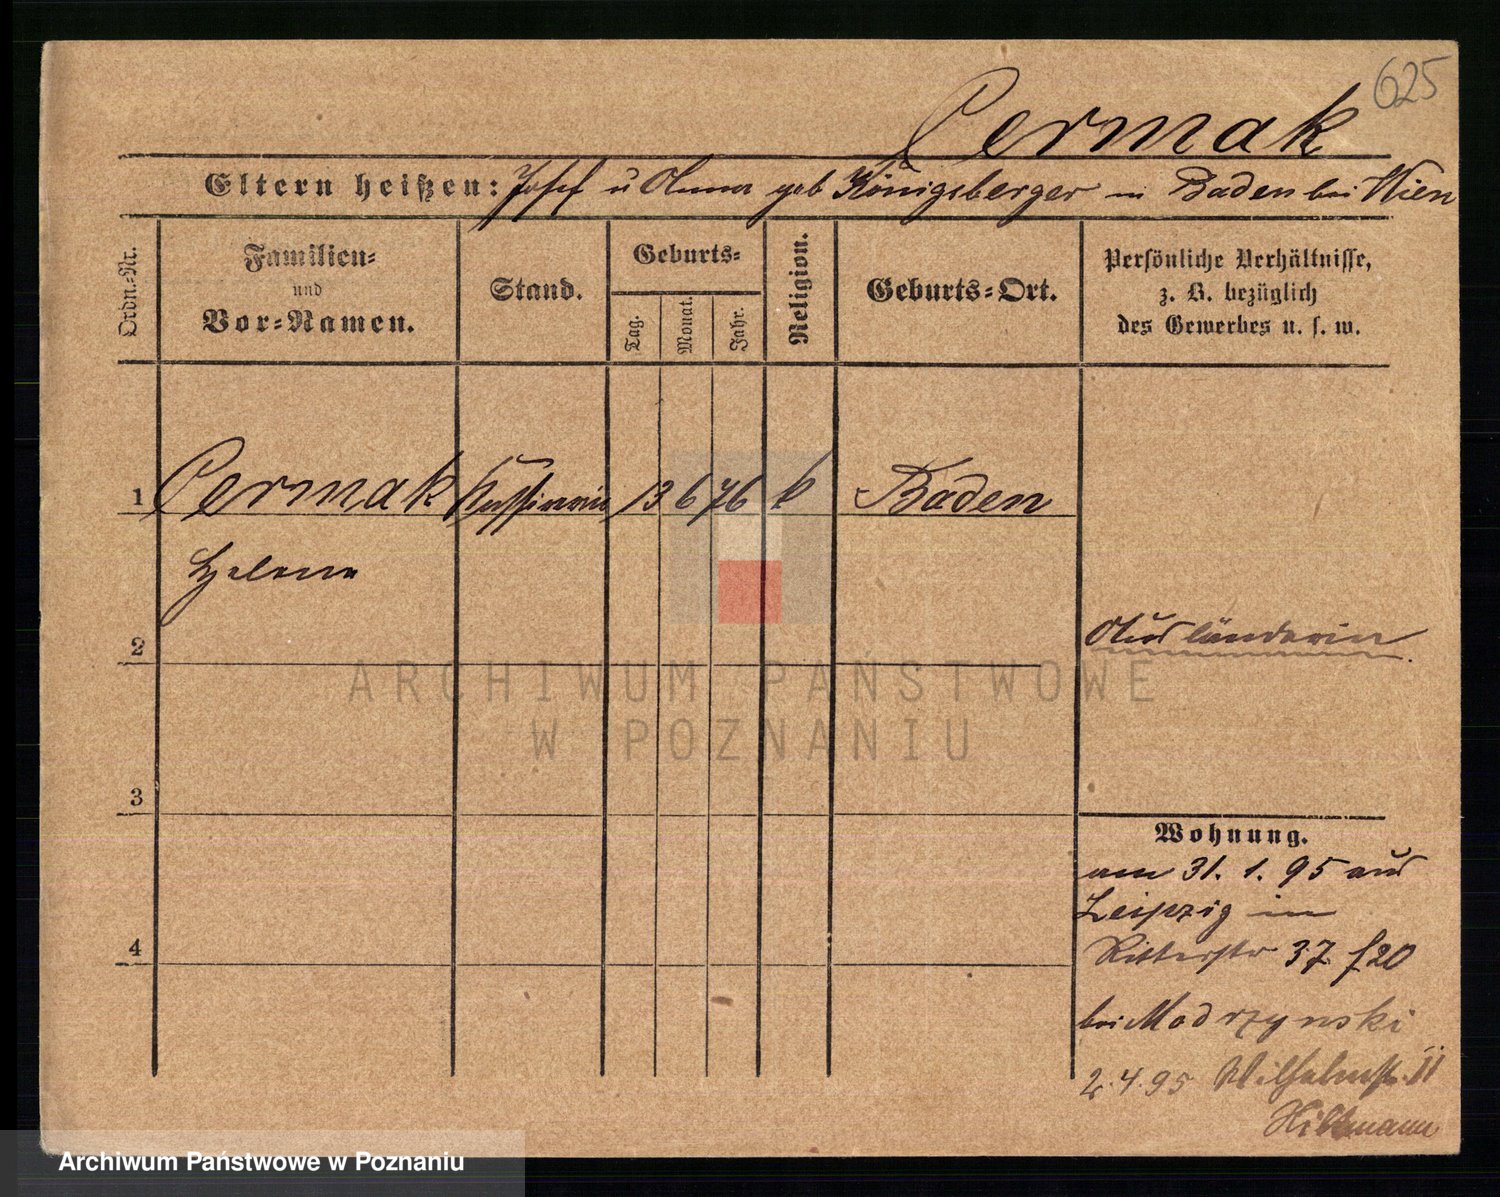 625
Cermak
Eltern heißen: Josef u Anna geb Königsberger in Baden bei Wien
Ordn.-Nr.
Familien-
und
Vor-Namen.
Stand.
Geburts-
Tag.
Monat.
Jahr.
Religion.
Geburts-Ort.
Persönliche Verhältnisse,
z. B. bezüglich
des Gewerbes u. s. w.
1 Cermak 13 6 76 k Baden
Helene
Ausländerin
2
3
4
Wohnung.
am 31. 1. 95 aus
Leipzig in
Ritterstr 37 f 20
bei Modrzynski
2. 4. 95 Wilhelmstr. 11
Hiltmann
ARCHIWUM PAŃSTWOWE
W POZNANIU
Archiwum Państwowe w Poznaniu